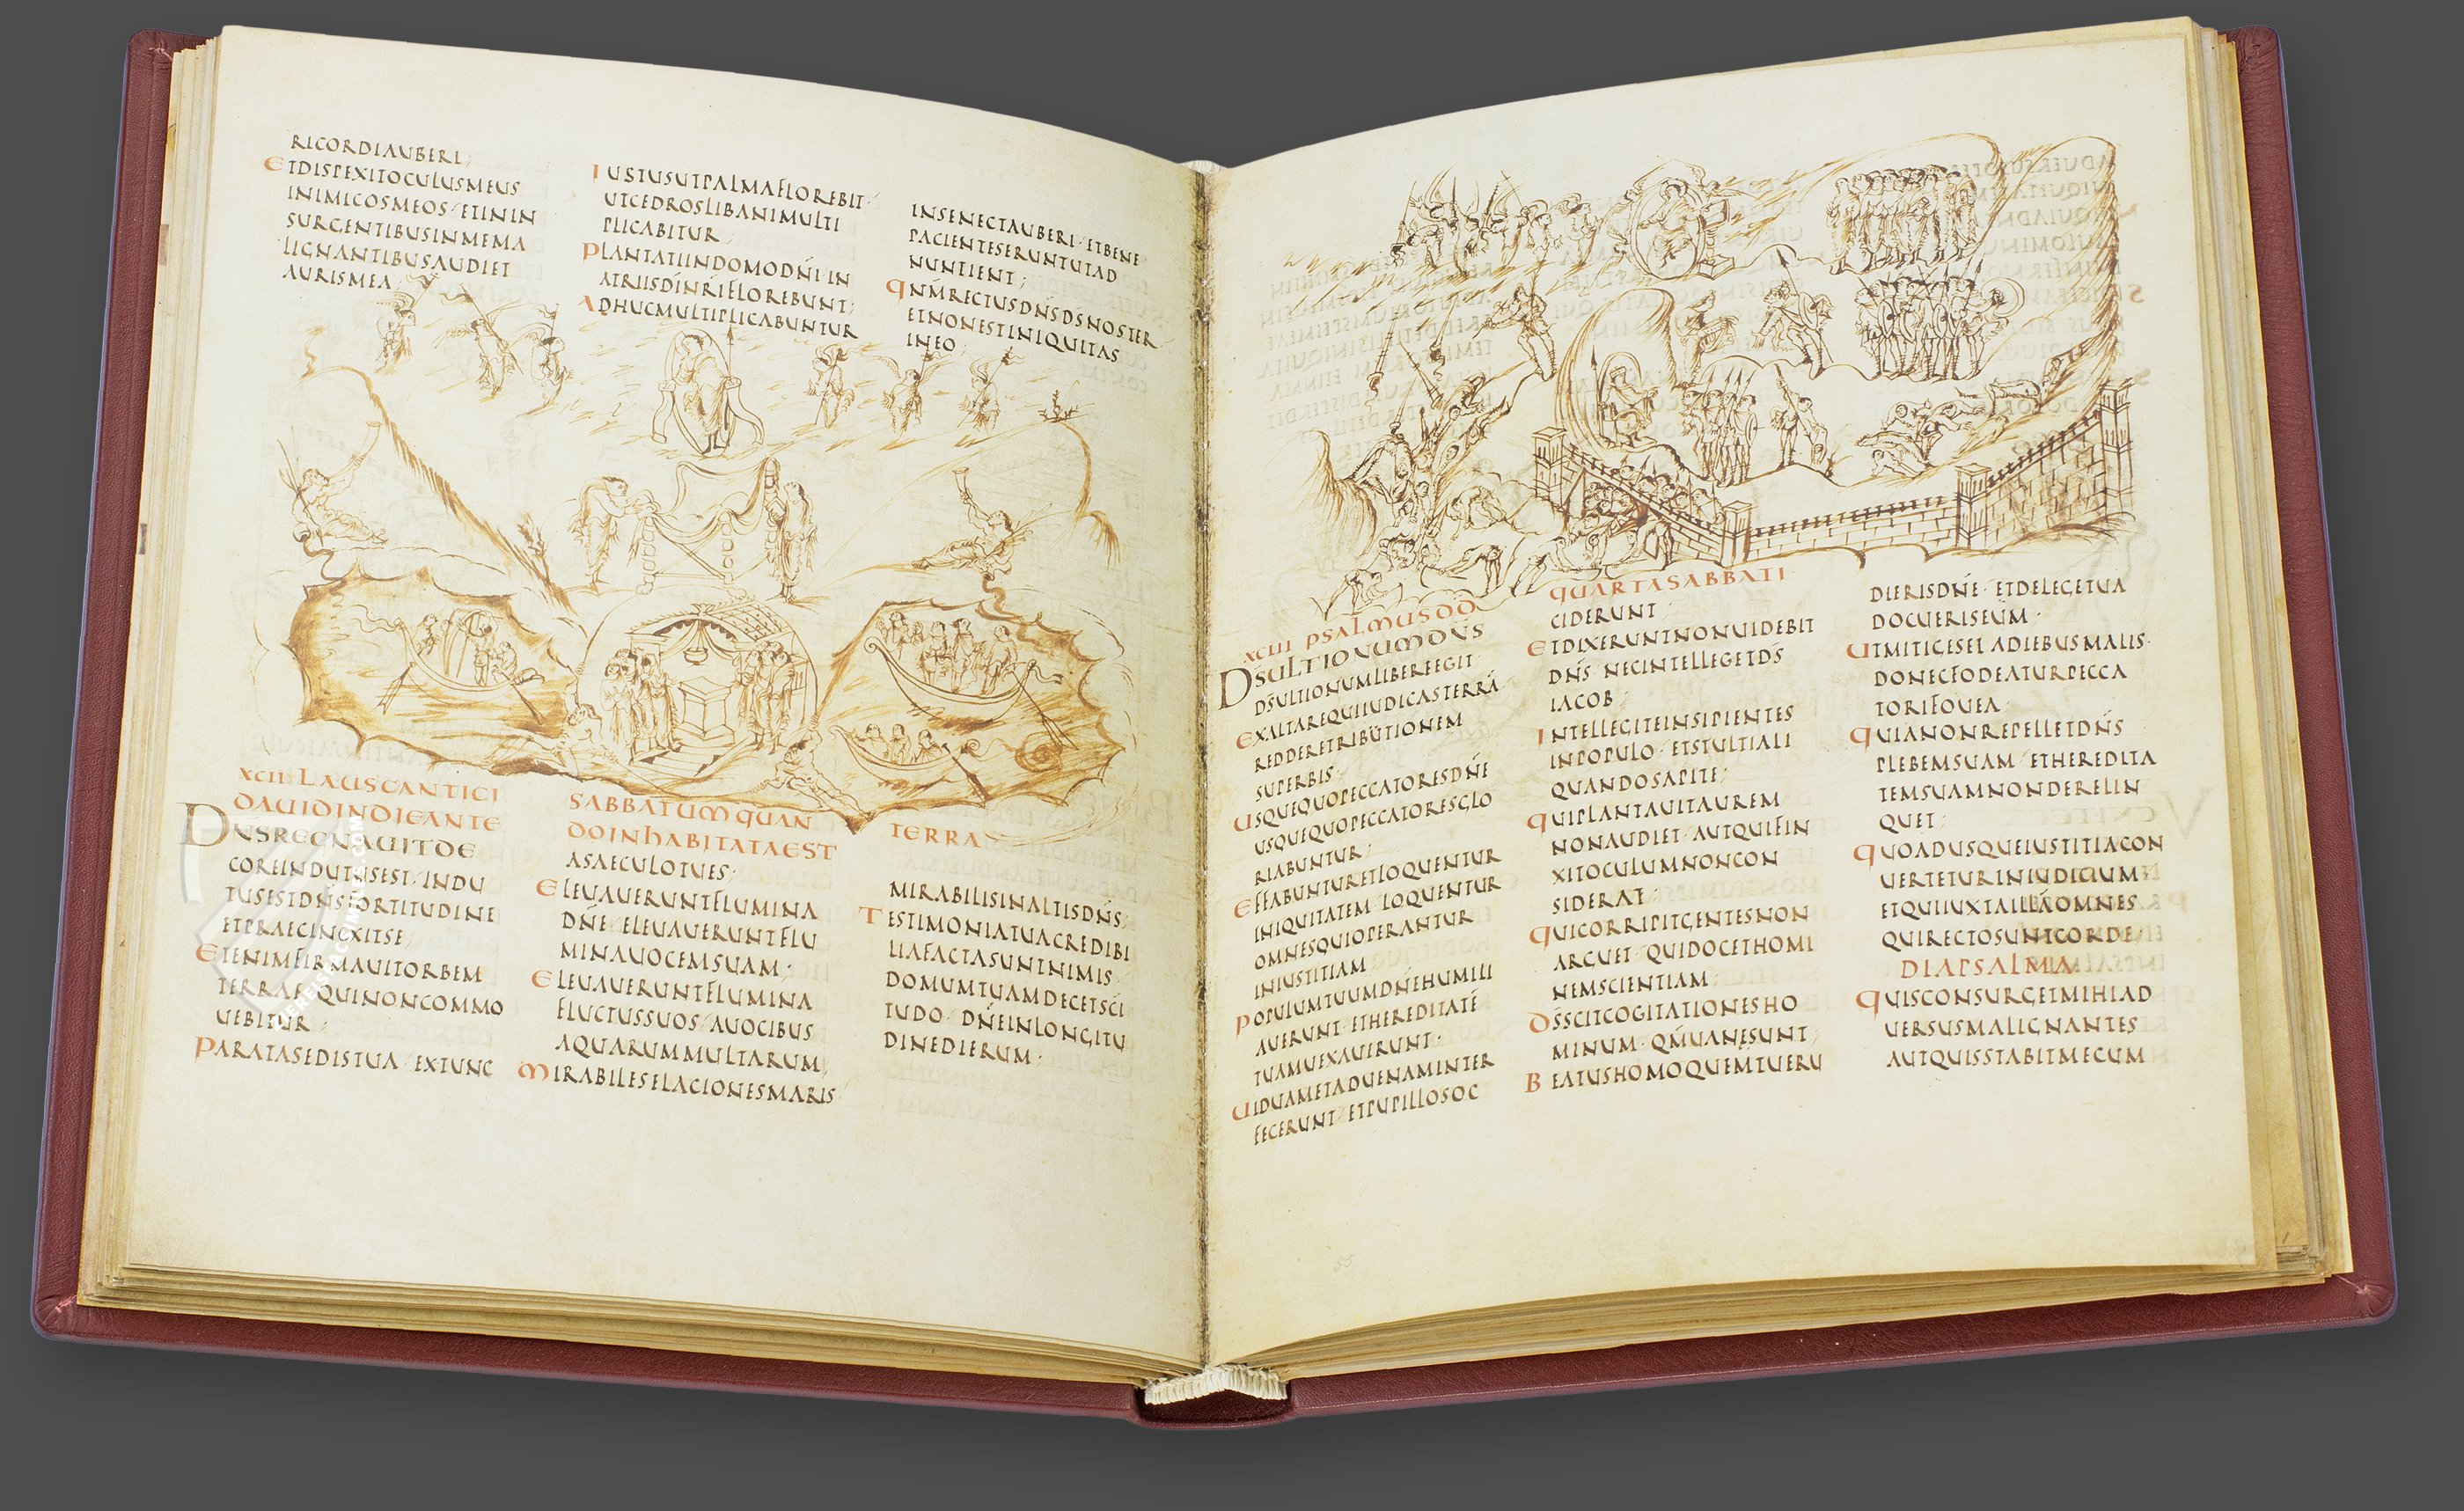 RICORDIAUBERI;
ETDISPEXITOCULUSMEUS
INIMICOSMEOS·ETININ
SURGENTIBUSINMEMA
LIGNANTIBUSAUDIET
AURISMEA;
IUSTUSUTPALMAFLOREBIT·
UTCEDROSLIBANIMULTI
PLICABITUR;
PLANTATIINDOMODN̄I IN
ATRIISDĪNR̄IFLOREBUNT;
ADHUCMULTIPLICABUNTUR
INSENECTAUBERI·ETBENE
PACIENTESERUNTUTAD
NUNTIENT;
QNM̄RECTUSDN̄SDSNOSTER
ETNONESTINIQUITAS
INEO
XCII LAUSCANTICI
DAUIDINDIEANTE
SABBATUMQUAN
DOINHABITATAEST
TERRA
DN̄SREGNAUITDE
COREINDUTUSEST·INDU
TUSESTDN̄SFORTITUDINE
ETPRAECINCXITSE;
ETENIMFIRMAUITORBEM
TERRAE·QUINONCOMMO
UEBITUR;
PARATASEDISTUA·EXTUNC
ASAECULOTUES;
ELEUAUERUNTFLUMINA
DN̄E·ELEUAUERUNTFLU
MINAUOCEMSUAM·
ELEUAUERUNTFLUMINA
FLUCTUSSUOS·AUOCIBUS
AQUARUMMULTARUM;
MIRABILESELACIONESMARIS
MIRABILISINALTISDN̄S;
TESTIMONIATUACREDIBI
LIAFACTASUNTNIMIS·
DOMUMTUAMDECETSC̄I
TUDO·DN̄EINLONGITU
DINEDIERUM·
XCIII PSALMUSDD
QUARTASABBATI
DS̄ULTIONUMDN̄S
DS̄ULTIONUMLIBEREEGIT·
EXALTAREQUIIUDICASTERRĀ
REDDERETRIBUTIONEM
SUPERBIS·
USQUEQUOPECCATORESDN̄E
USQUEQUOPECCATORESGLO
RIABUNTUR;
EFFABUNTURETLOQUENTUR
INIQUITATEM·LOQUENTUR
OMNESQUIOPERANTUR
INIUSTITIAM
POPULUMTUUMDN̄EHUMILI
AUERUNT·ETHEREDITATĒ
TUAMUEXAUERUNT·
UIDUAMETADUENAMINTER
FECERUNT·ETPUPILLOSOC
CIDERUNT·
ETDIXERUNTNONUIDEBIT
DN̄S·NECINTELLEGETDS̄
IACOB;
INTELLEGITEINSIPIENTES
INPOPULO·ETSTULTIALI
QUANDOSAPITE;
QUIPLANTAUITAUREM
NONAUDIET·AUTQUIFIN
XITOCULUMNONCON
SIDERAT;
QUICORRIPITGENTESNON
ARGUET·QUIDOCETHOMI
NEMSCIENTIAM;
DS̄SCITCOGITATIONESHO
MINUM·QM̄UANĘSUNT;
BEATUSHOMOQUEMTUERU
DIERISDN̄E·ETDELEGETUA
DOCUERISEUM·
UTMITIGESEI ADIEBUSMALIS·
DONECFODEATURPECCA
TORIFOUEA·
QUIANONREPELLETDN̄S
PLEBEMSUAM·ETHEREDITA
TEMSUAMNONDERELIN
QUET;
QUOADUSQUEIUSTITIACON
UERTETURINIUDICIUM·
ETQUIIUXTAILLĀOMNES
QUIRECTOSUNTCORDE;
DIAPSALMA
QUISCONSURGETMIHIAD
UERSUSMALIGNANTES
AUTQUISSTABITMECUM
55